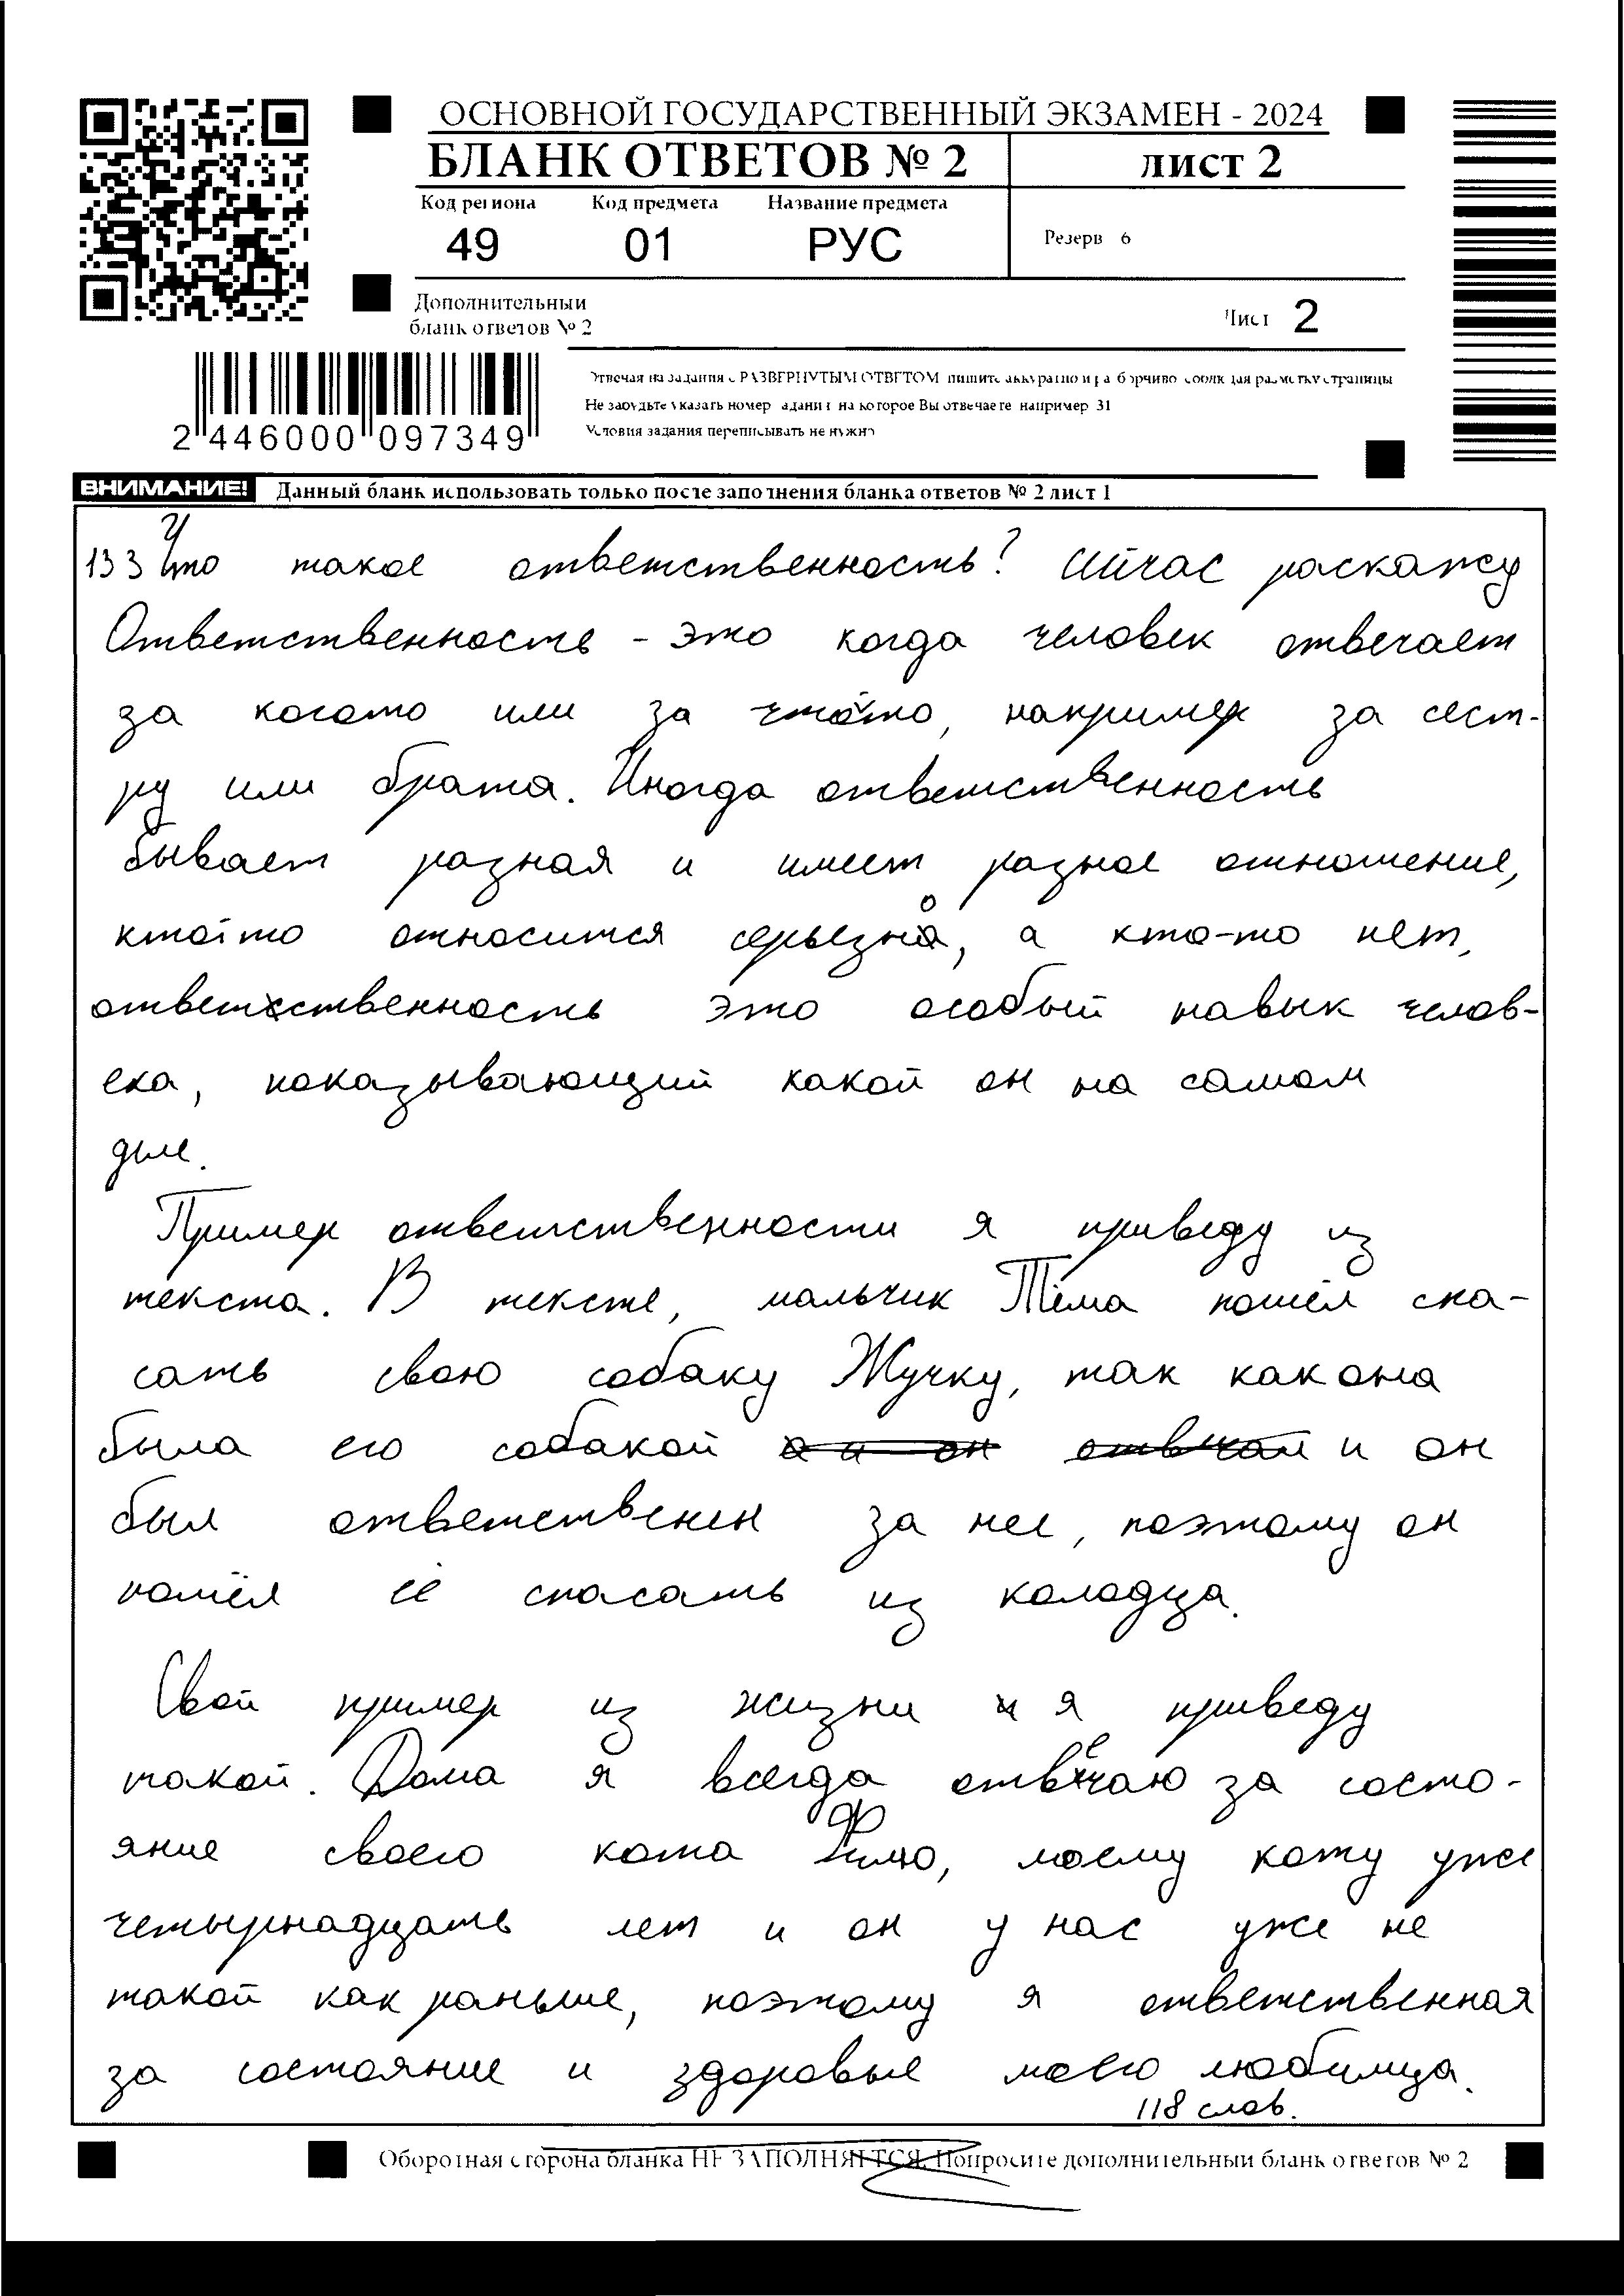 ОСНОВНОЙ ГОСУДАРСТВЕННЫЙ ЭКЗАМЕН - 2024
БЛАНК ОТВЕТОВ № 2 ЛИСТ 2
Код региона Код предмета Название предмета
49 01 РУС Резерв 6
Дополнительный
бланк ответов № 2 Лист 2
Отвечая на задания с РАЗВЕРНУТЫМ ОТВЕТОМ пишите аккуратно и разборчиво соблюдая разметку страницы
Не забудьте указать номер задания на которое Вы отвечаете например 31
Условия задания переписывать не нужно
2 446000 097349
ВНИМАНИЕ! Данный бланк использовать только после заполнения бланка ответов № 2 лист 1
13 3 Что такое ответственность? Сийчас раскажу
Ответственность - это когда человек отвечает
за когото или за что-то, например за сест-
ру или брата. Иногда ответственность
бывает разная и имеет разное отношение,
кто-то относится серьезно, а кто-то нет,
ответственность это особый навык челов-
ека, показывающий какой он на самом
деле.
Пример ответственности я приведу из
текста. В тексте, мальчик Тёма пошёл спа-
сать свою собаку Жучку, так как она
была его собакой и он
был ответственен за нее, поэтому он
пошёл её спасать из колодца.
Свой пример из жизни я приведу
такой. Дома я всегда отвечаю за состо-
яние своего кота Филю, моему коту уже
четырнадцать лет и он у нас уже не
такой как раньше, поэтому я ответственная
за состояние и здоровье моего любимца.
118 слов.
Оборотная сторона бланка НЕ ЗАПОЛНЯЕТСЯ. Попросите дополнительный бланк ответов № 2